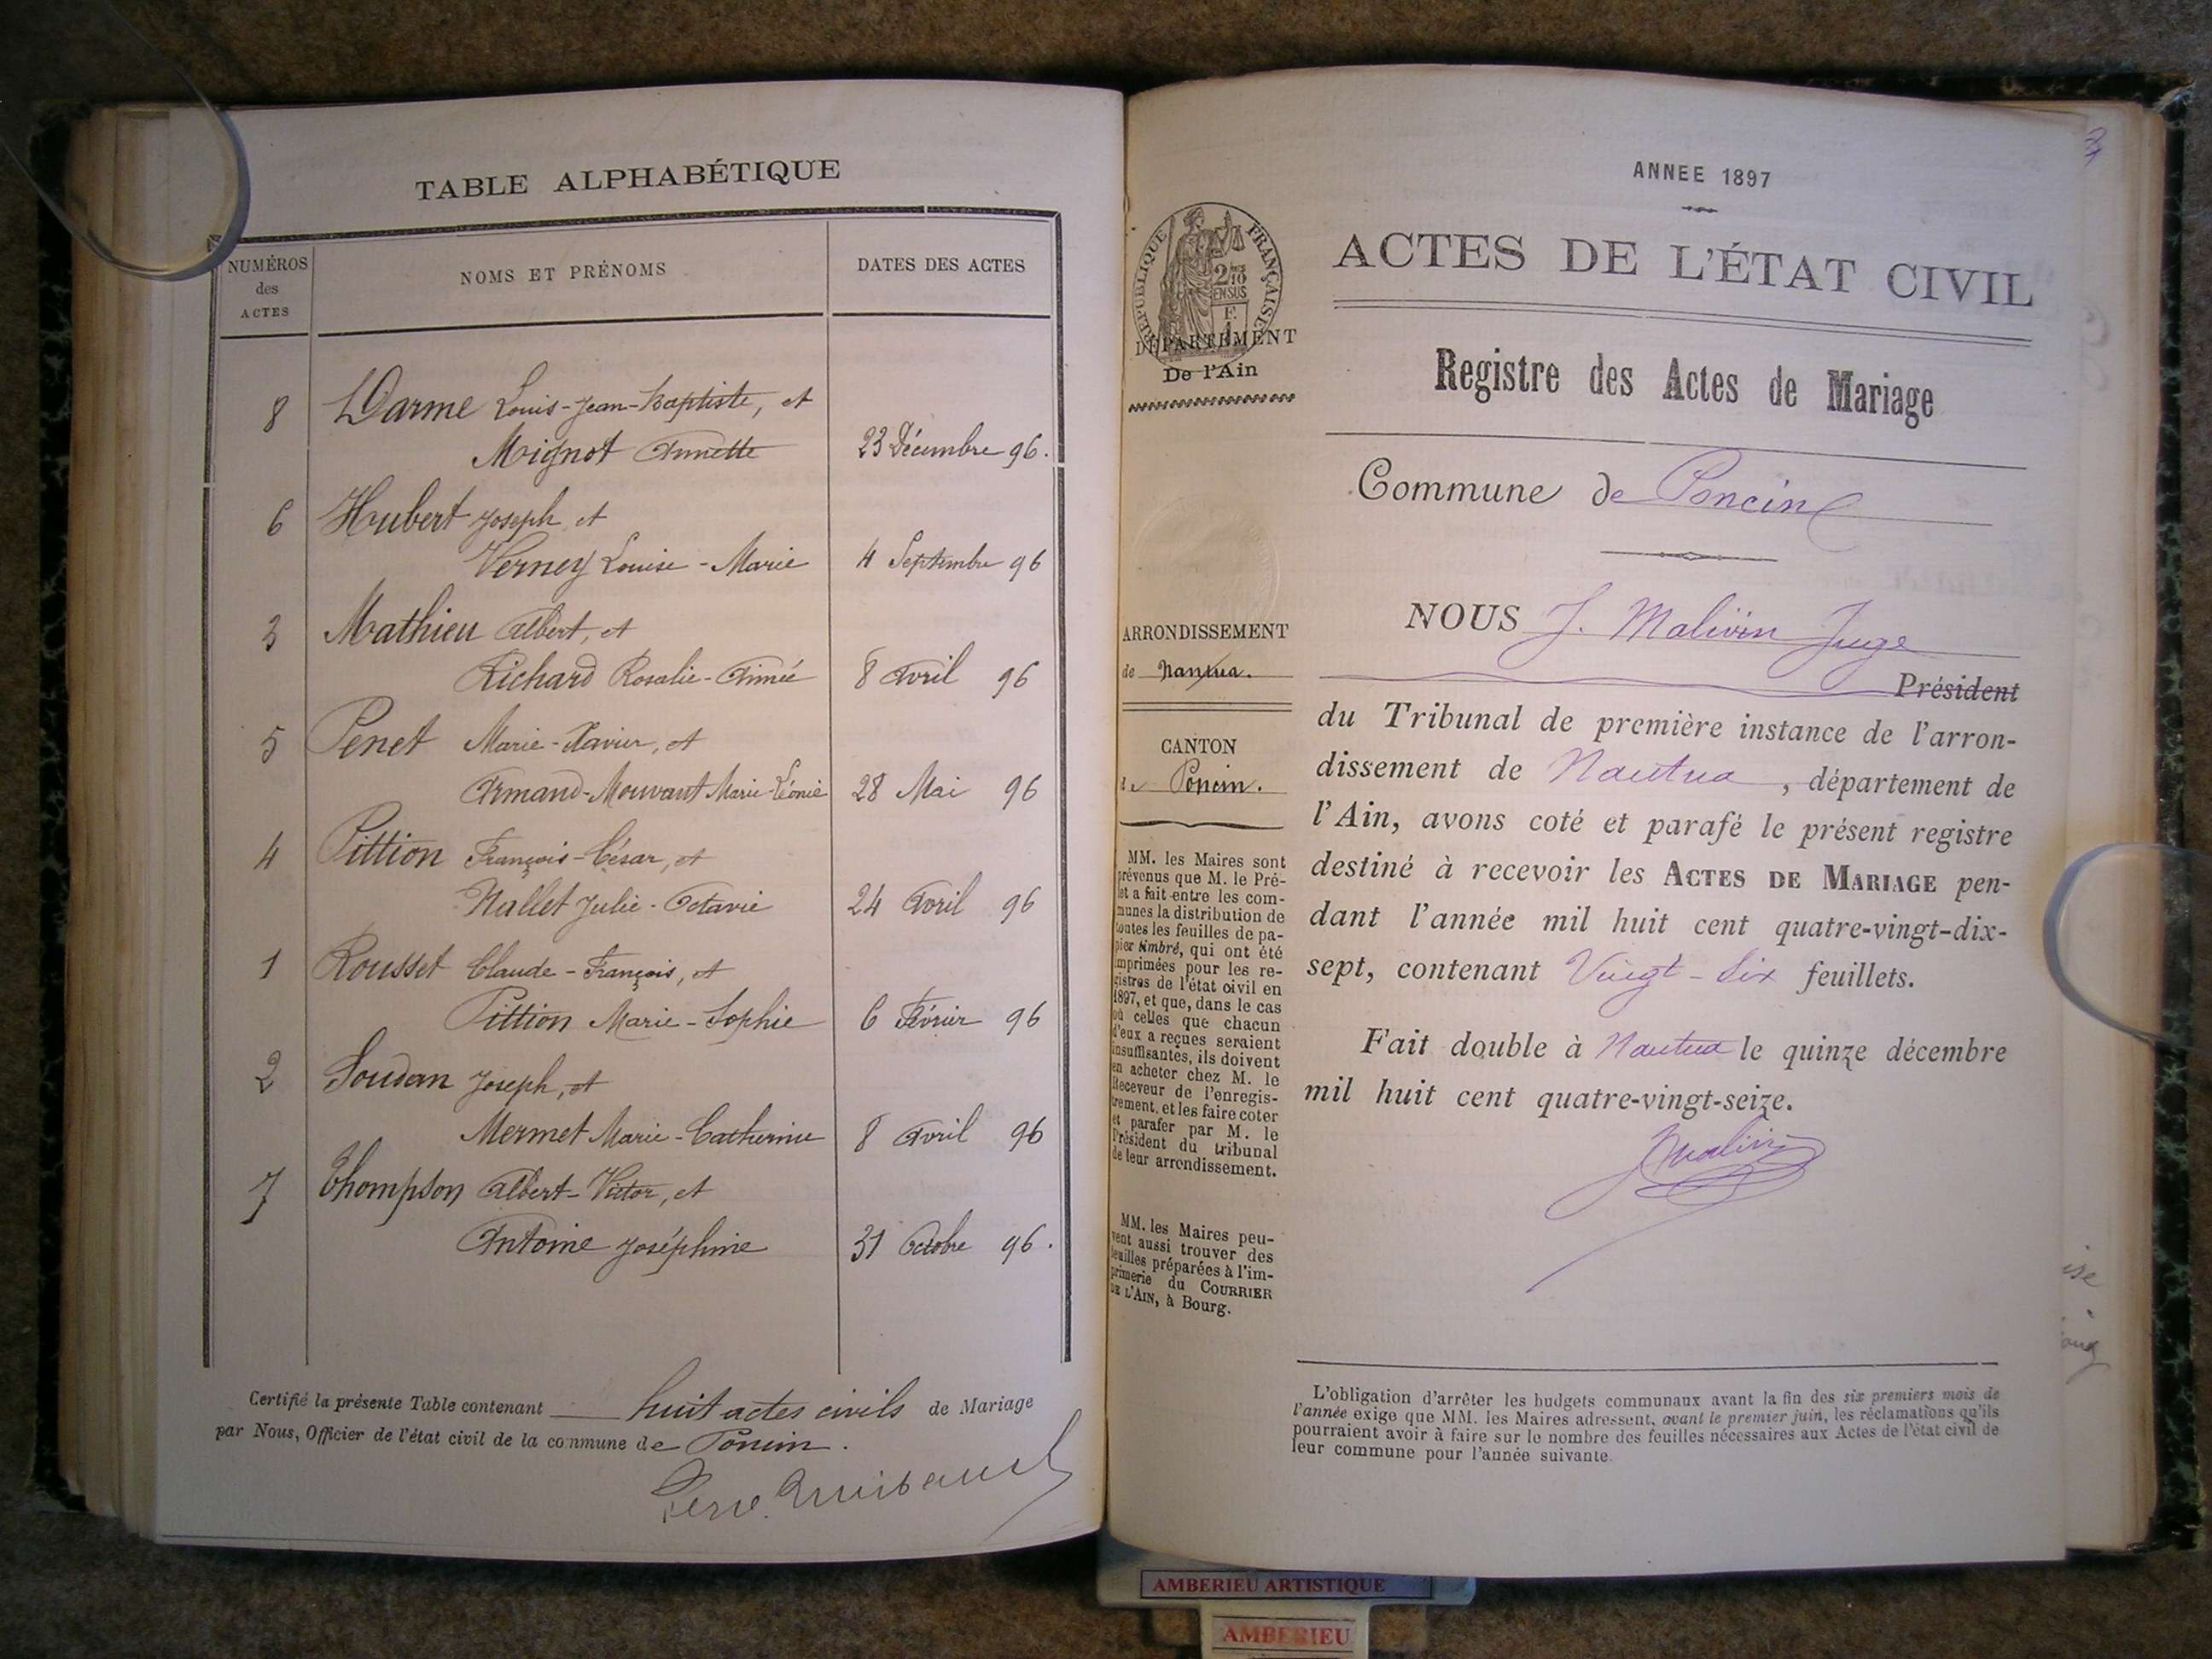 TABLE ALPHABÉTIQUE
NUMÉROS
des
ACTES
NOMS ET PRÉNOMS
DATES DES ACTES
8 Darme Louis-Jean-Baptiste, et
Mignot Annette 23 Décembre 96.
6 Hubert Joseph, et
Verney Louise-Marie 4 Septembre 96
3 Mathieu Albert, et
Richard Rosalie-Aimée 8 Avril 96
5 Penet Marie-Xavier, et
Armand-Mouvant Marie-Léonie 28 Mai 96
4 Pittion François-César, et
Nallet Julie-Octavie 24 Avril 96
1 Rousset Claude-François, et
Pittion Marie-Sophie 6 Février 96
2 Soudan Joseph, et
Mermet Marie-Catherine 8 Avril 96
7 Thompson Albert-Victor, et
Antoine Joséphine 31 Octobre 96.
Certifié la présente Table contenant huit actes civils de Mariage
par Nous, Officier de l'état civil de la commune de Poncin.
ANNEE 1897
ACTES DE L'ÉTAT CIVIL
Registre des Actes de Mariage
Commune de Poncin
NOUS J. Malivin Juge
Président
du Tribunal de première instance de l'arron-
dissement de Nantua, département de
l'Ain, avons coté et parafé le présent registre
destiné à recevoir les ACTES DE MARIAGE pen-
dant l'année mil huit cent quatre-vingt-dix-
sept, contenant Vingt-Six feuillets.
Fait double à Nantua le quinze décembre
mil huit cent quatre-vingt-seize.
JMalivin
L'obligation d'arrêter les budgets communaux avant la fin des six premiers mois de
l'année exige que MM. les Maires adressent, avant le premier juin, les réclamations qu'ils
pourraient avoir à faire sur le nombre des feuilles nécessaires aux Actes de l'état civil de
leur commune pour l'année suivante.
RÉPUBLIQUE FRANÇAISE
DÉPARTEMENT
De l'Ain
ARRONDISSEMENT
de Nantua.
CANTON
de Poncin.
MM. les Maires sont
prévenus que M. le Pré-
fet a fait entre les com-
munes la distribution de
toutes les feuilles de pa-
pier timbré, qui ont été
imprimées pour les re-
gistres de l'état civil en
1897, et que, dans le cas
où celles que chacun
d'eux a reçues seraient
insuffisantes, ils doivent
en acheter chez M. le
Receveur de l'enregis-
trement, et les faire coter
et parafer par M. le
Président du tribunal
de leur arrondissement.
MM. les Maires peu-
vent aussi trouver des
feuilles préparées à l'im-
primerie du COURRIER
DE L'AIN, à Bourg.
AMBERIEU ARTISTIQUE
AMBERIEU